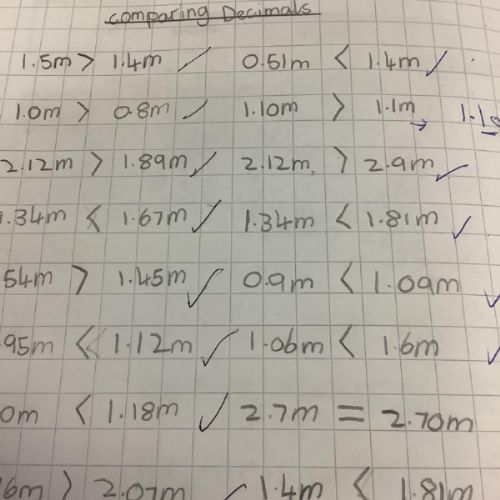 comparing Decimals
1.5m > 1.4m ✓ 0.61m < 1.4m ✓
1.0m > 0.8m ✓ 1.10m > 1.1m → 1.1
2.12m > 1.89m ✓ 2.12m > 2.9m ✓
.34m < 1.67m ✓ 1.34m < 1.81m ✓
54m > 1.45m ✓ 0.9m < 1.09m ✓
.95m < 1.12m ✓ 1.06m < 1.6m ✓
0m < 1.18m ✓ 2.7m = 2.70m
6m > 2.07m ✓ 1.4m < 1.81m